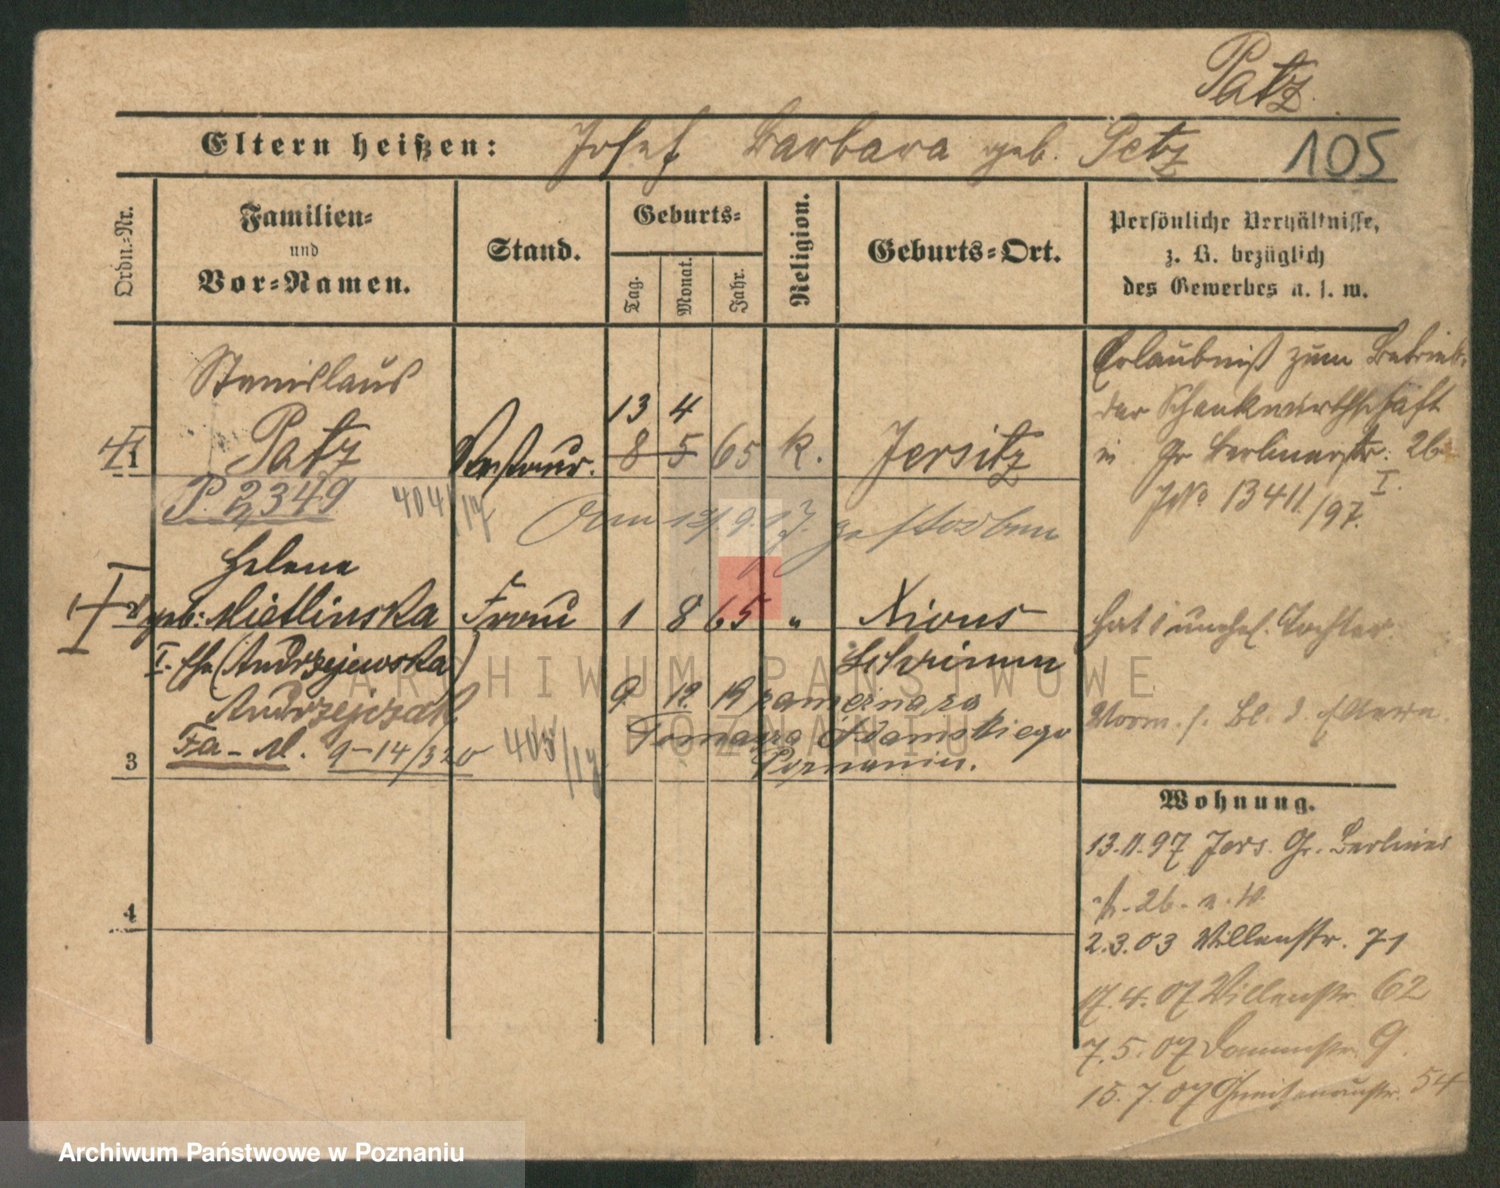 Patz
Eltern heißen: Josef Barbara geb. Petz 105
Ordn.-Nr.
Familien-
und
Vor-Namen.
Stand.
Geburts-
Tag.
Monat.
Jahr.
Religion.
Geburts-Ort.
Persönliche Verhältnisse,
z. B. bezüglich
des Gewerbes u. s. w.
Stanislaus
1 Patz Restaur. 13 4
8 5 65 k. Jersitz
P. 2349 404/17 am 12/9.17. gestorben
Helene
2 geb. Mietlinska Frau 1 8 65 " Xions
I. Ehe (Andrzejewska) Schrimm
Andrzejczak 9. 12. 19 zamężna za
Tomasza Adamskiego
3 Fa-M. 9-14/320 405/17 Poznaniu.
4
Erlaubniß zum Betrieb
der Schankwirthschaft
in Gr Berlinerstr. 26
I.
JNo 13411/97.
hat 1 unehel. Tochter.
Vorm. s. Bl. d. Eltern.
Wohnung.
13.11.97 Jers. Gr. Berliner
str. 26. u. W.
2.3.03 Villenstr. 71
17.4.07 Villenstr. 62
7.5.07 Dammstr. 9.
15.7.07 Gneisenaustr. 54
ARCHIWUM PAŃSTWOWE
W POZNANIU
Archiwum Państwowe w Poznaniu